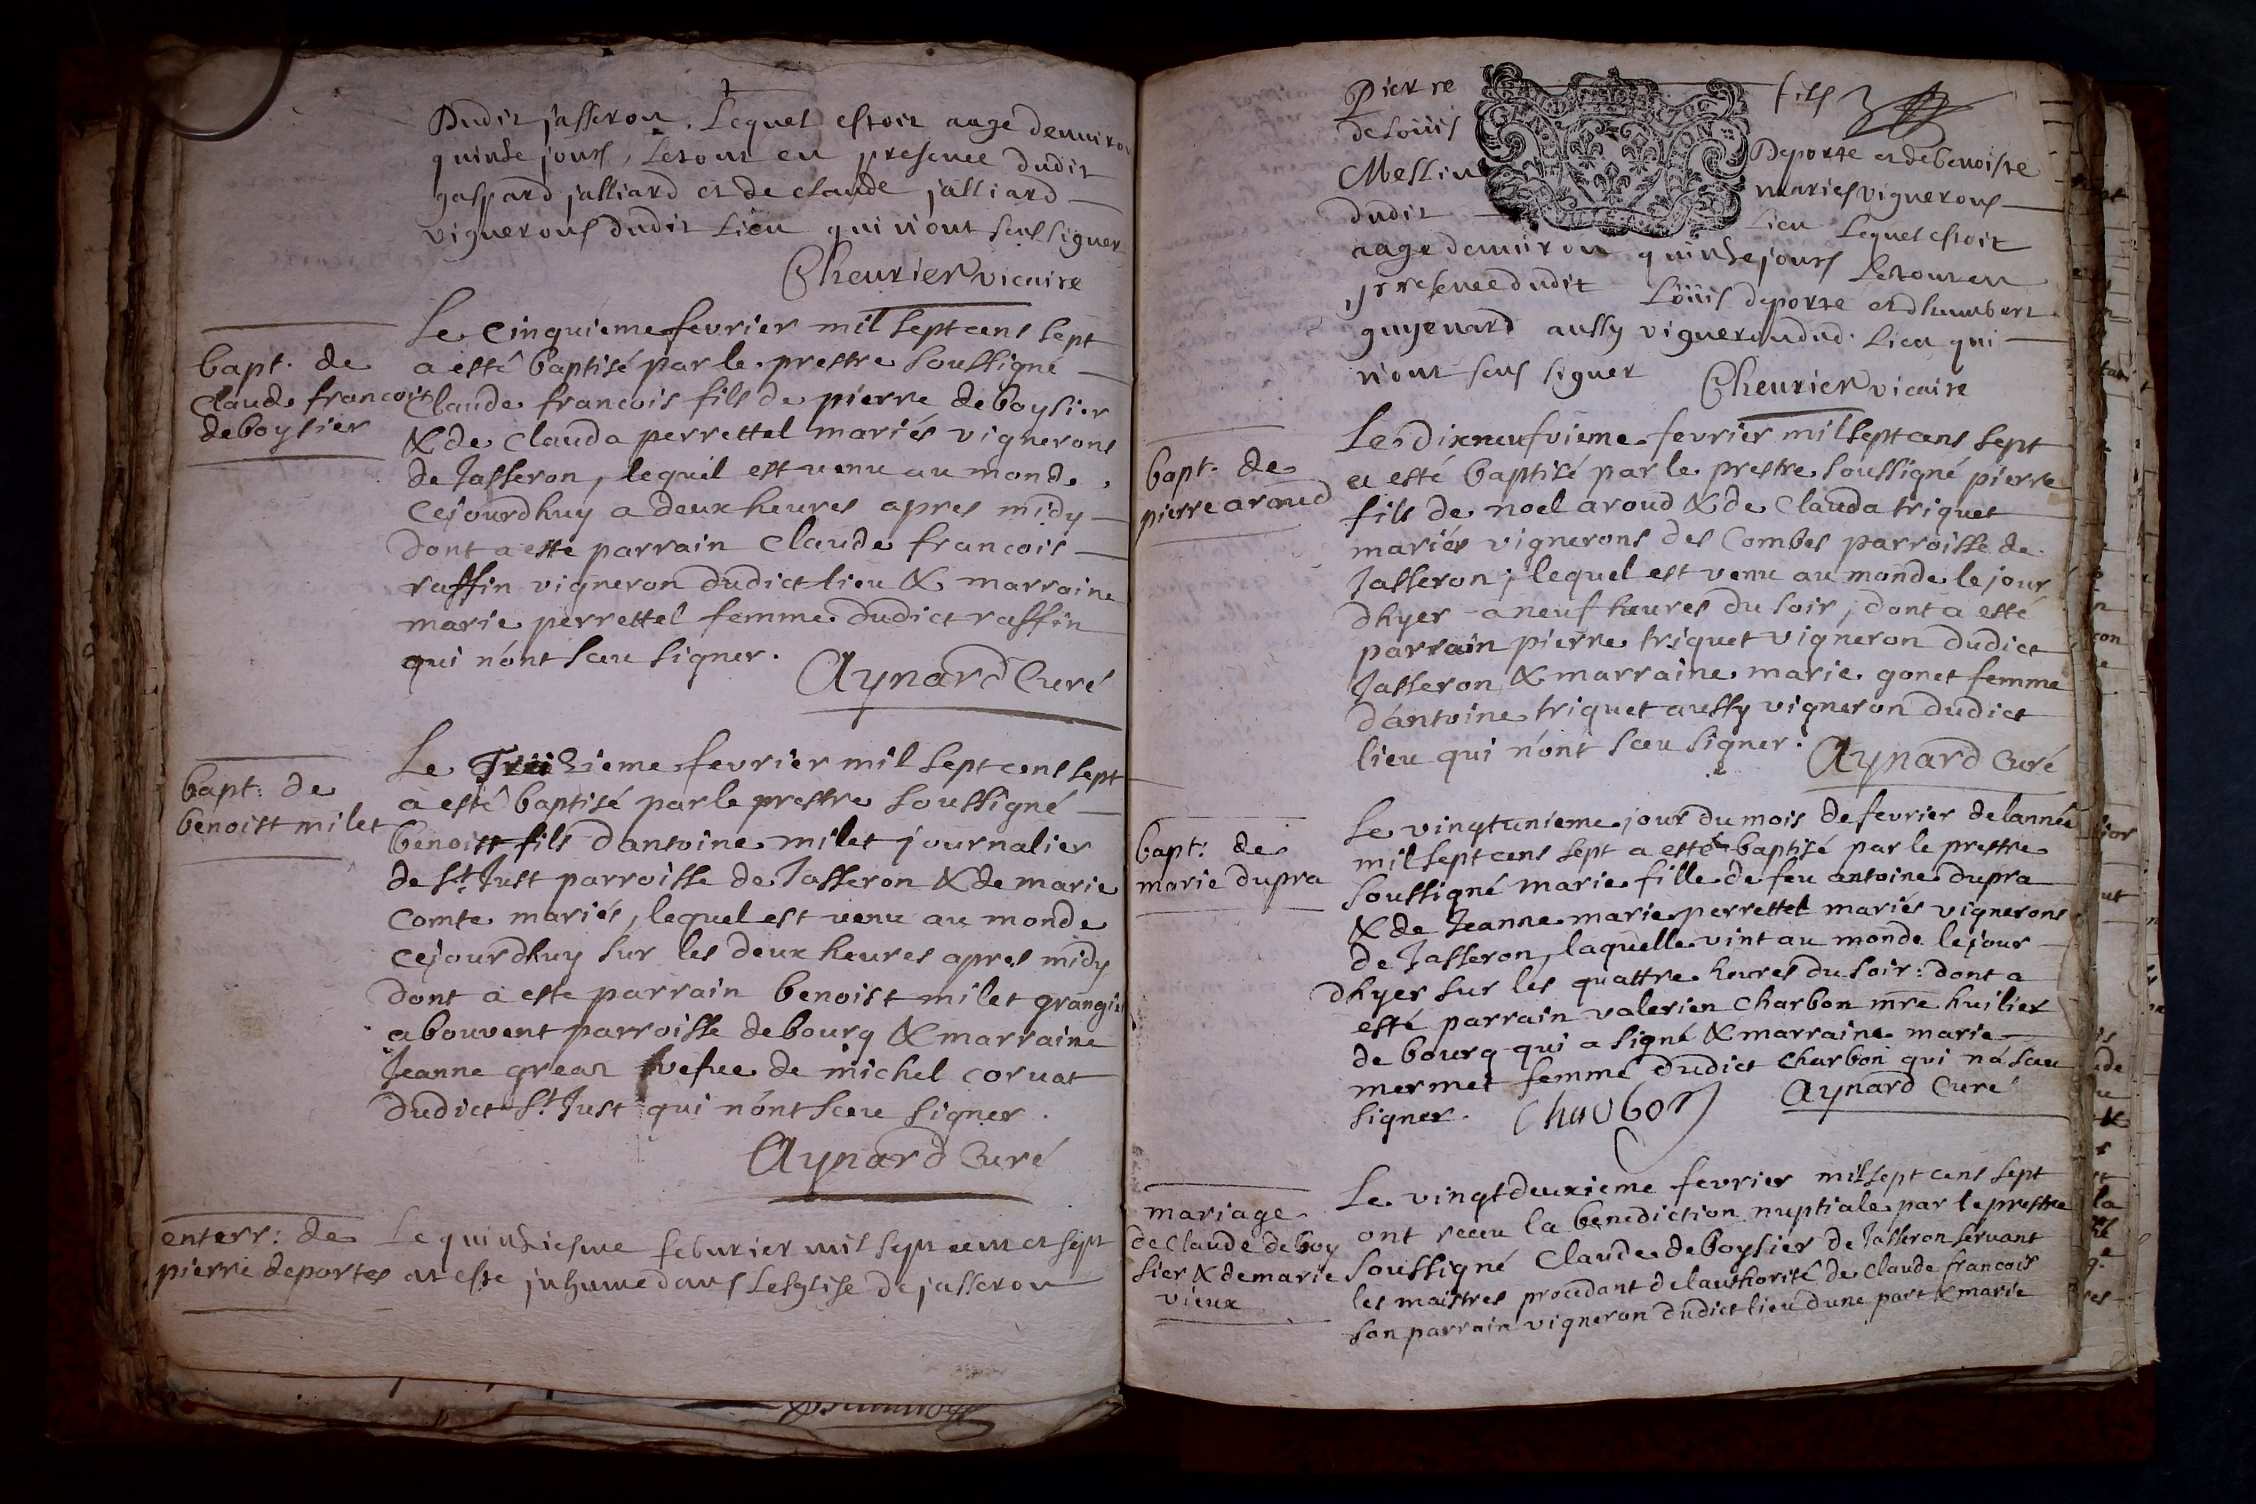 Dudit jasseron. Lequel estoit aage denuiron
quinse jours, Letout en presence dudit
gaspard jalliard et de claude jalliard
vignerons dudit Lieu qui n'ont sceu signer
Cheurier vicaire
bapt. de
Claude francois
deboysier
Le cinquieme feurier mil sept cens sept
a esté baptisé par le prestre soussigné
Claude francois fils de pierre deboysier
& de Clauda perrettel mariés vignerons
de Jasseron, lequel est venu au monde
cejourdhuy a deux heures apres midy
dont a esté parrain Claude francois
raffin vigneron dudict lieu & marraine
marie perrettel femme dudict raffin
qui n'ont sceu signer.
Aynard Curé
bapt: de
benoist milet
Le Treizieme feurier mil sept cens sept
a esté baptisé par le prestre soussigné
benoist fils dantoine milet journalier
de St Just parroisse de Jasseron & de marie
Comte mariés, lequel est venu au monde
cejourdhuy sur les deux heures apres midy
dont a esté parrain benoist milet grangier
a bouvent parroisse de bourg & marraine
Jeanne grear vefue de michel coruat
dudict St Just qui n'ont sceu signer.
Aynard Curé
enterr: de
pierre deportes
Le quinziesme feburier mil sept cent et sept
at esté inhumé dans Lesglise de jasseron
Pierre fils
de Loüis Deporte et de benoiste
Meslin mariés vignerons
dudit Lieu Lequel estoit
aage denuiron quinse jours Letout en
presence dudit Loüis deporte et dhumbert
guyenard aussy vigneron dud. Lieu qui
n'ont sceu signer Cheurier vicaire
bapt. de
pierre aroud
Le dixneufvieme feurier mil sept cens sept
a esté baptisé par le prestre soussigné pierre
fils de noel aroud & de Clauda triquet
mariés vignerons des Combes parroisse de
Jasseron; lequel est venu au monde le jour
dhyer a neuf heures du soir, dont a esté
parrain pierre triquet vigneron dudict
Jasseron & marraine marie gonet femme
dantoine triquet aussy vigneron dudict
lieu qui n'ont sceu signer. Aynard Curé
bapt: de
marie dupra
Le vingtunieme jour du mois de feurier de lannée
mil sept cens sept a esté baptisé par le prestre
soussigné marie fille de feu antoine dupra
& de Jeanne marie perrettel mariés vignerons
de Jasseron, laquelle vint au monde le jour
dhyer sur les quattre heures du soir: dont a
esté parrain valerien Charbon mre huilier
de bourg qui a signé & marraine marie
mermet femme dudict Charbon qui n'a sceu
signer. Charbon Aynard Curé
mariage
de Claude deboy
sier & de marie
vieux
Le vingtdeuxieme feurier mil sept cens sept
ont receu la benediction nuptiale par le prestre
soussigné Claude deboysier de Jasseron seruant
les maistres procedant de lauthorité de Claude francois
son parrain vigneron dudict lieu dune part & marie